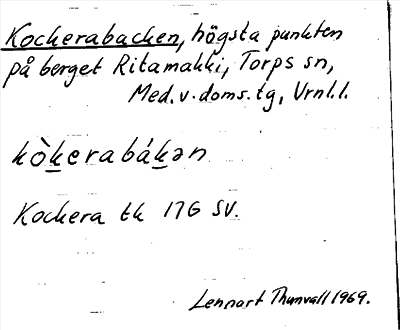 Kockerabacken, högsta punkten
på berget Ritamäkki, Torps sn,
Med. v. doms. tg, Vrml. l.
kòk̲erabák̲ən
Kockera tk 17G SV.
Lennart Thunvall 1969.